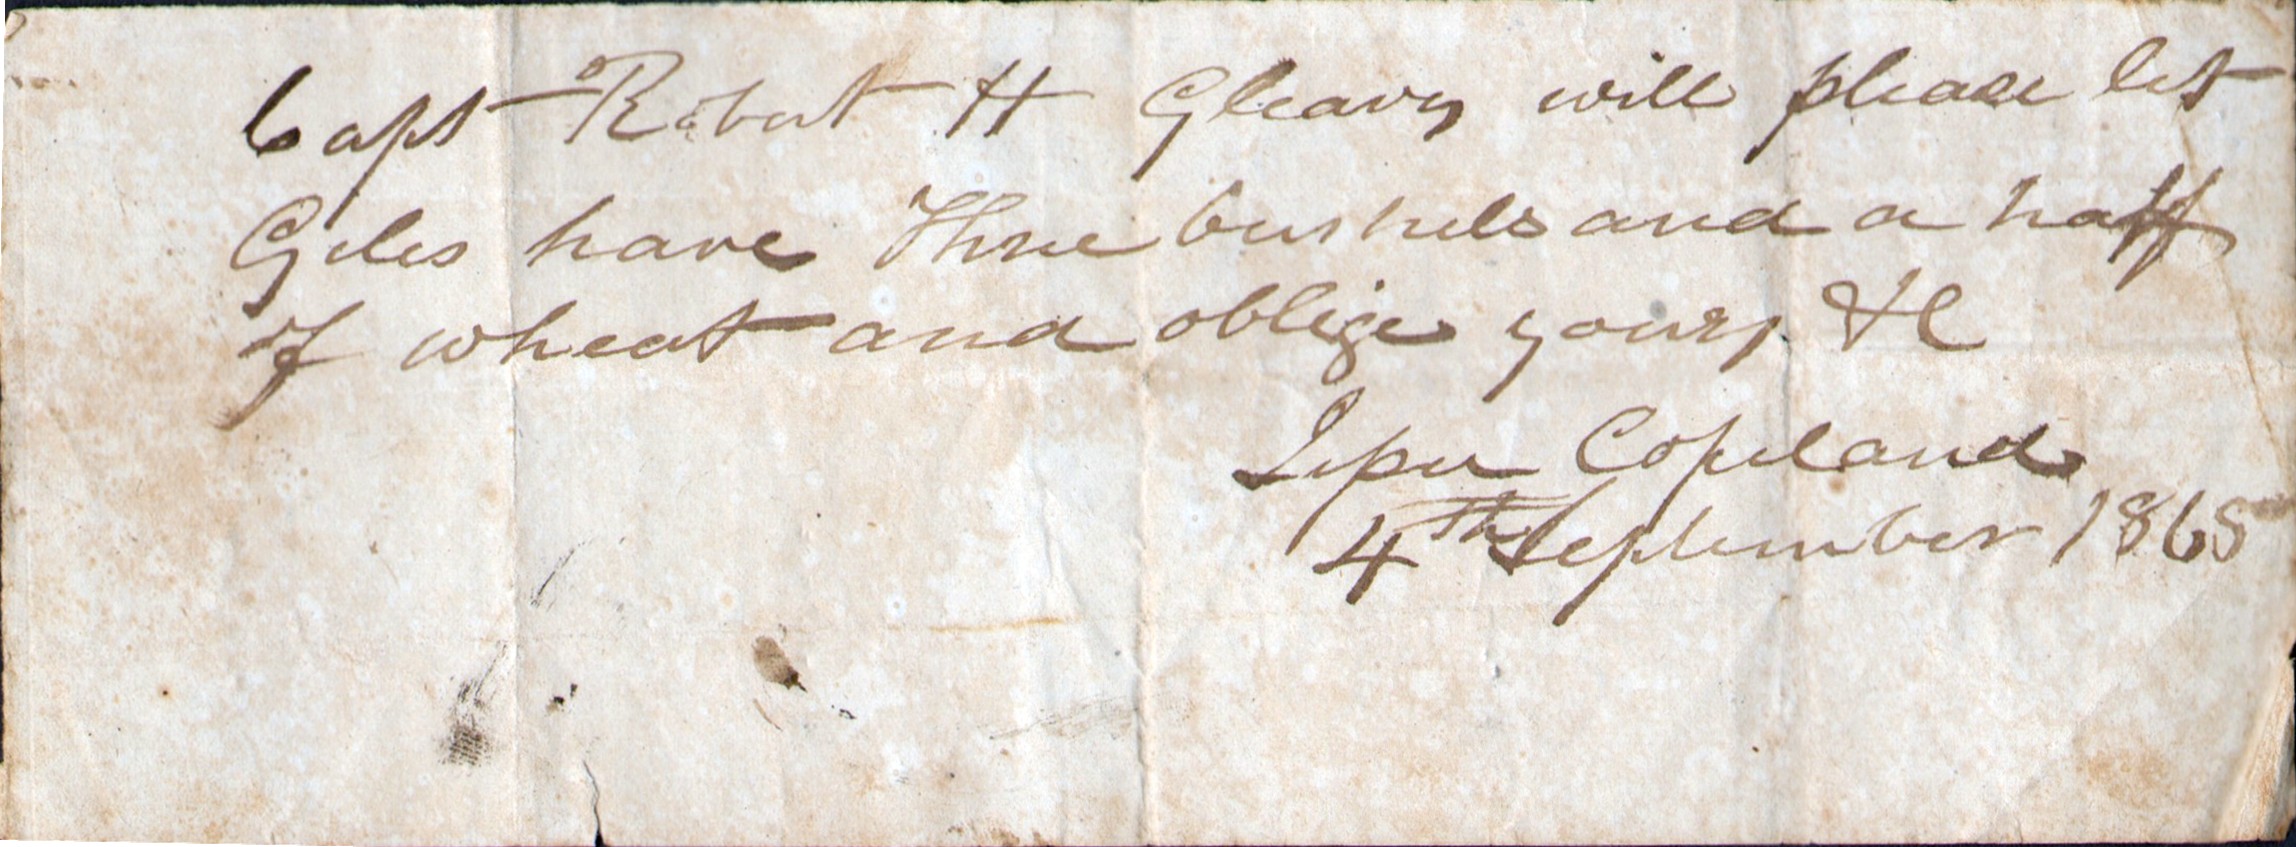 Capt Robert H Gleaves will please let
Giles have Three bushels and a half
of wheat and oblige yours &C
Copeland
4th September 1865